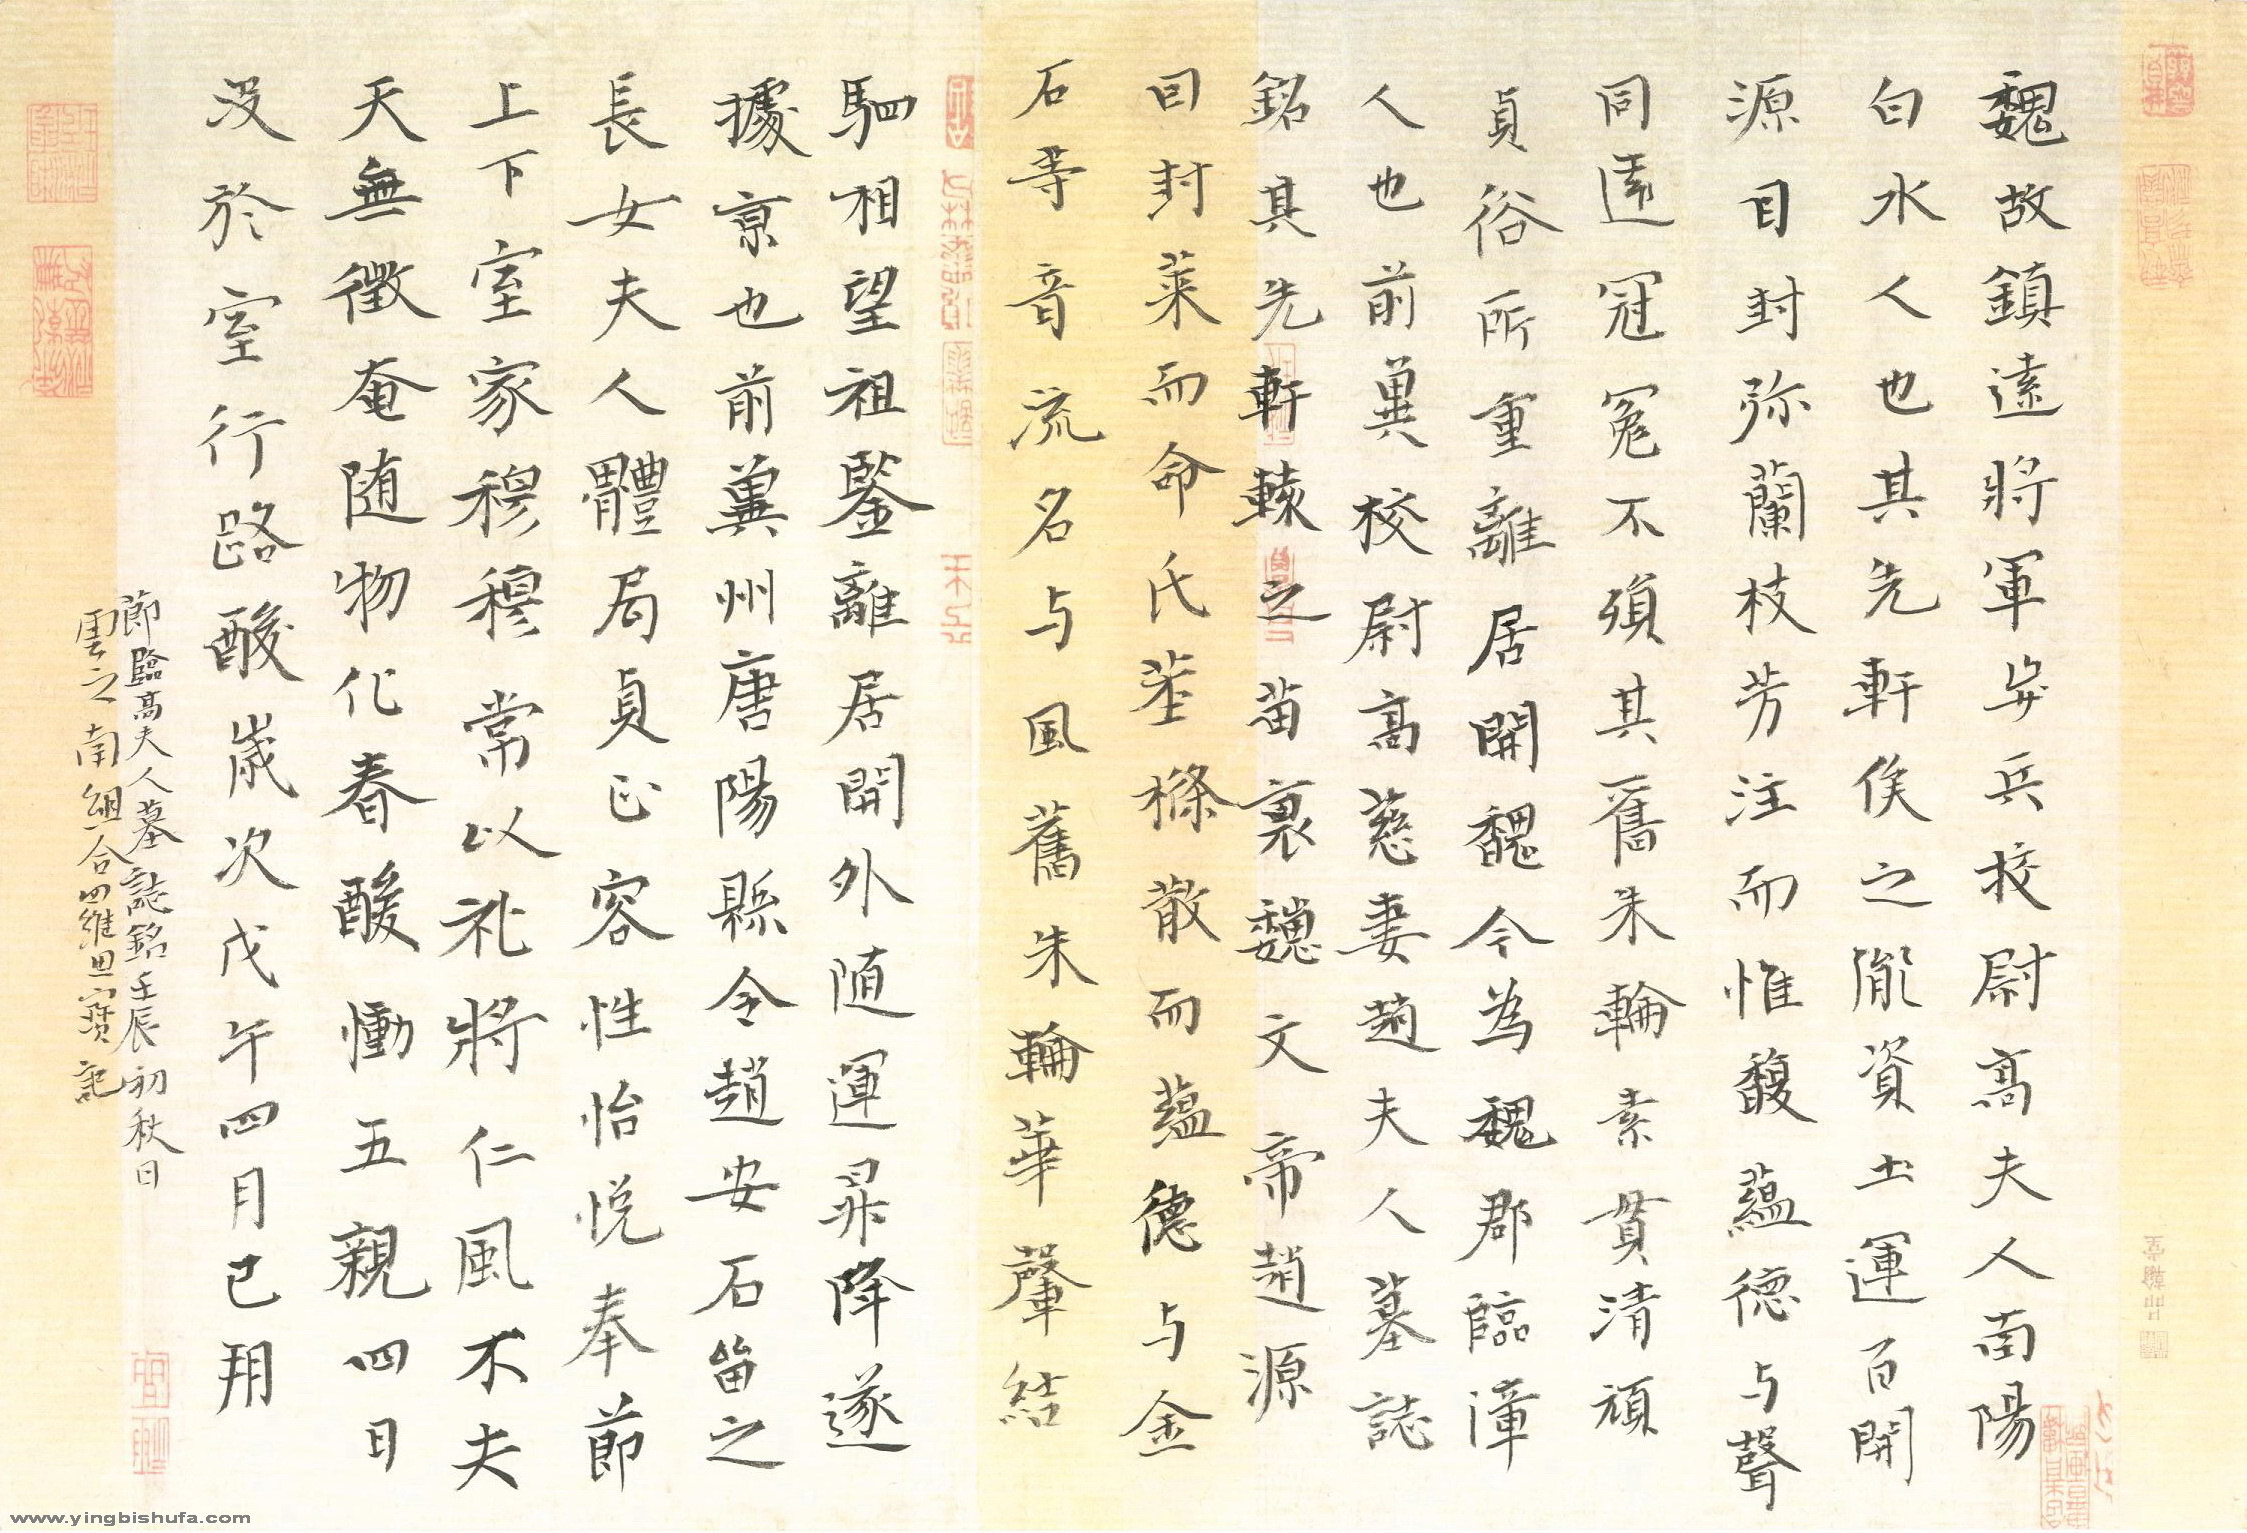 魏故鎮遠將軍安兵校尉高夫人南陽
白水人也其先軒侯之胤資土運百開
源目封弥蘭枝芳注而惟馥蘊德与聲
同遠冠冕不須其舊朱輪素貫清頑
貞俗所重離居開魏今為魏郡臨漳
人也前冀校尉高慈妻趙夫人墓誌
銘其先軒轅之苗裏魏文帝趙源
曰封菜而命氏條散而蘊德与金
石等音流名与風舊朱輪華聲結
駟相望祖鑒離居開外随運昇降遂
據京也前冀州唐陽縣令趙安石留之
長女夫人體局貞正容性怡悦奉節
上下室家穆穆常以礼將仁風不夫
天無徵奄随物化春酸慟五親四日
没於室行路酸歲次戊午四月己朔
節臨高夫人墓誌銘壬辰初秋日
雲之南組合四羅思寶記
www.yingbishufa.com